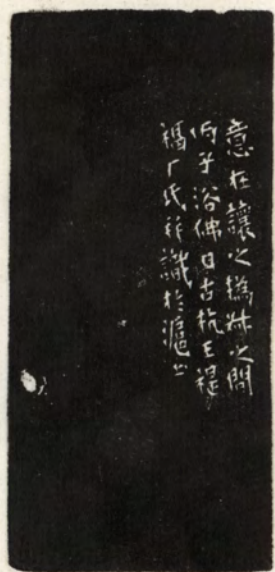 意在讓之撝叔之間
丙子浴佛日古杭王褆
福厂氏并識於滬上